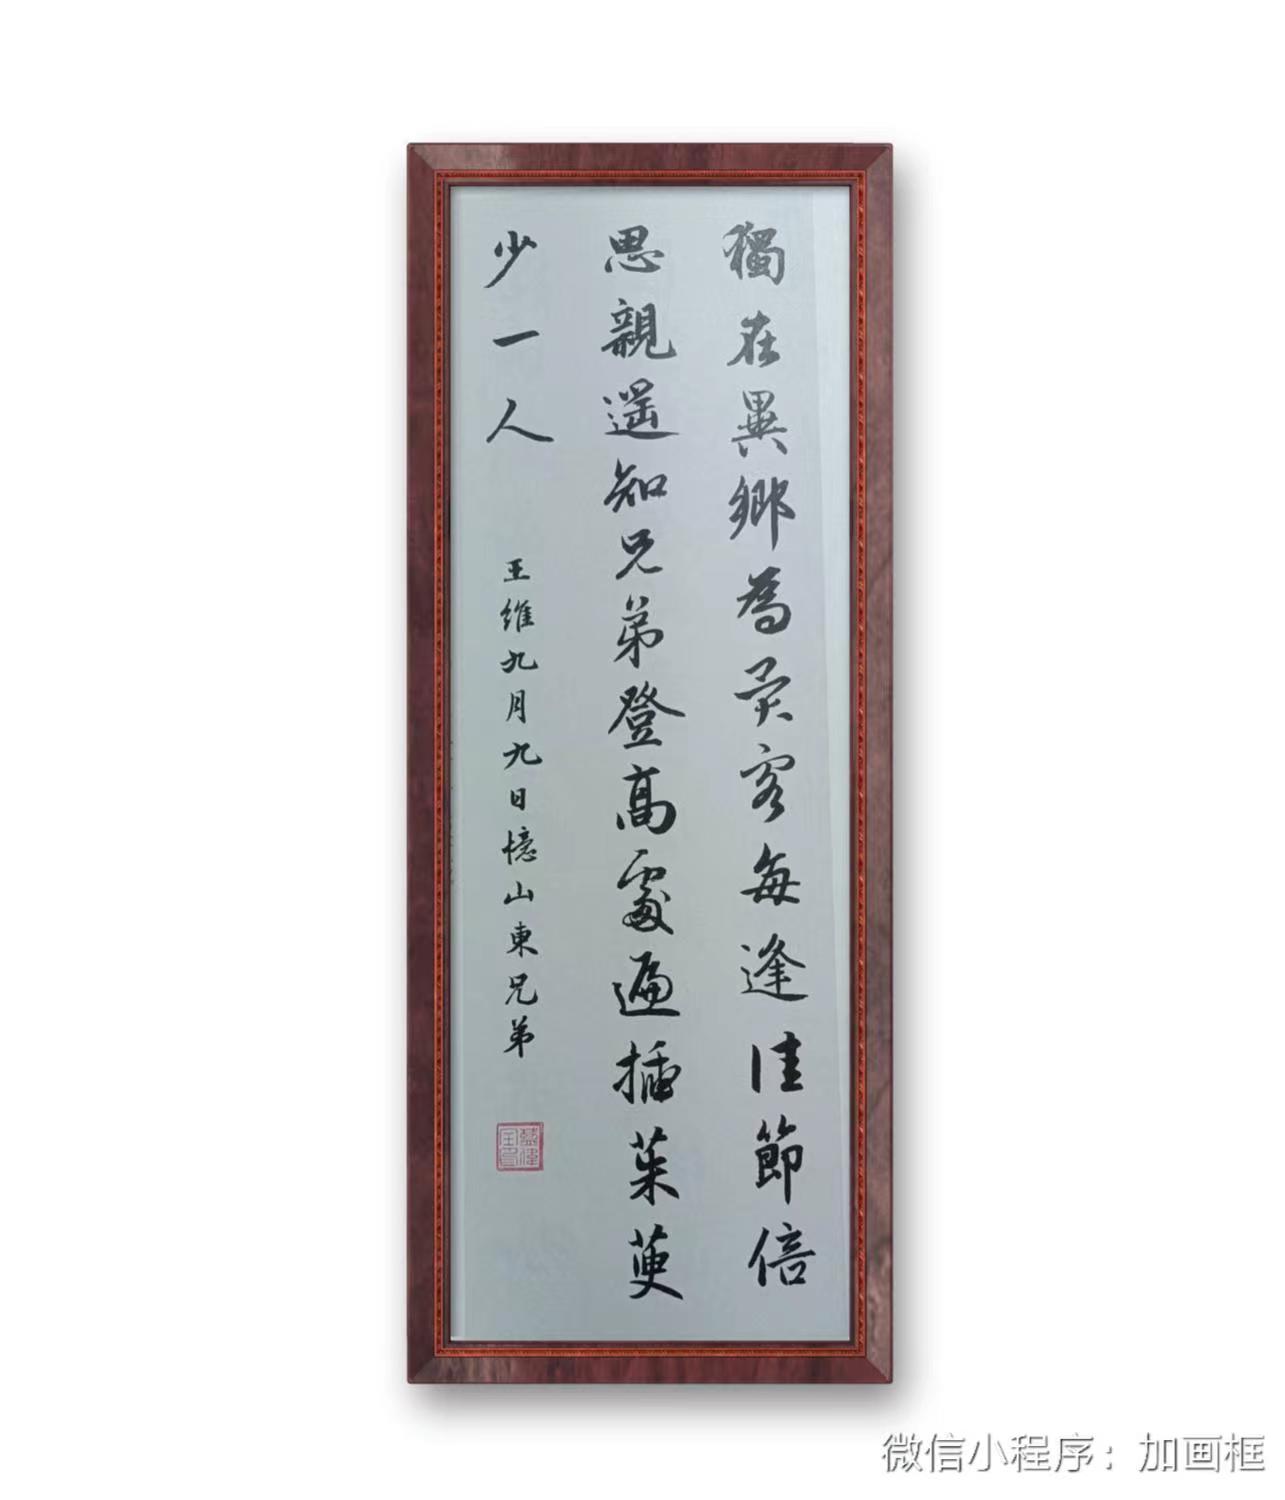 獨在異鄉為異客每逢佳節倍
思親遥知兄弟登高處遍插茱萸
少一人
王維九月九日憶山東兄弟
微信小程序：加画框